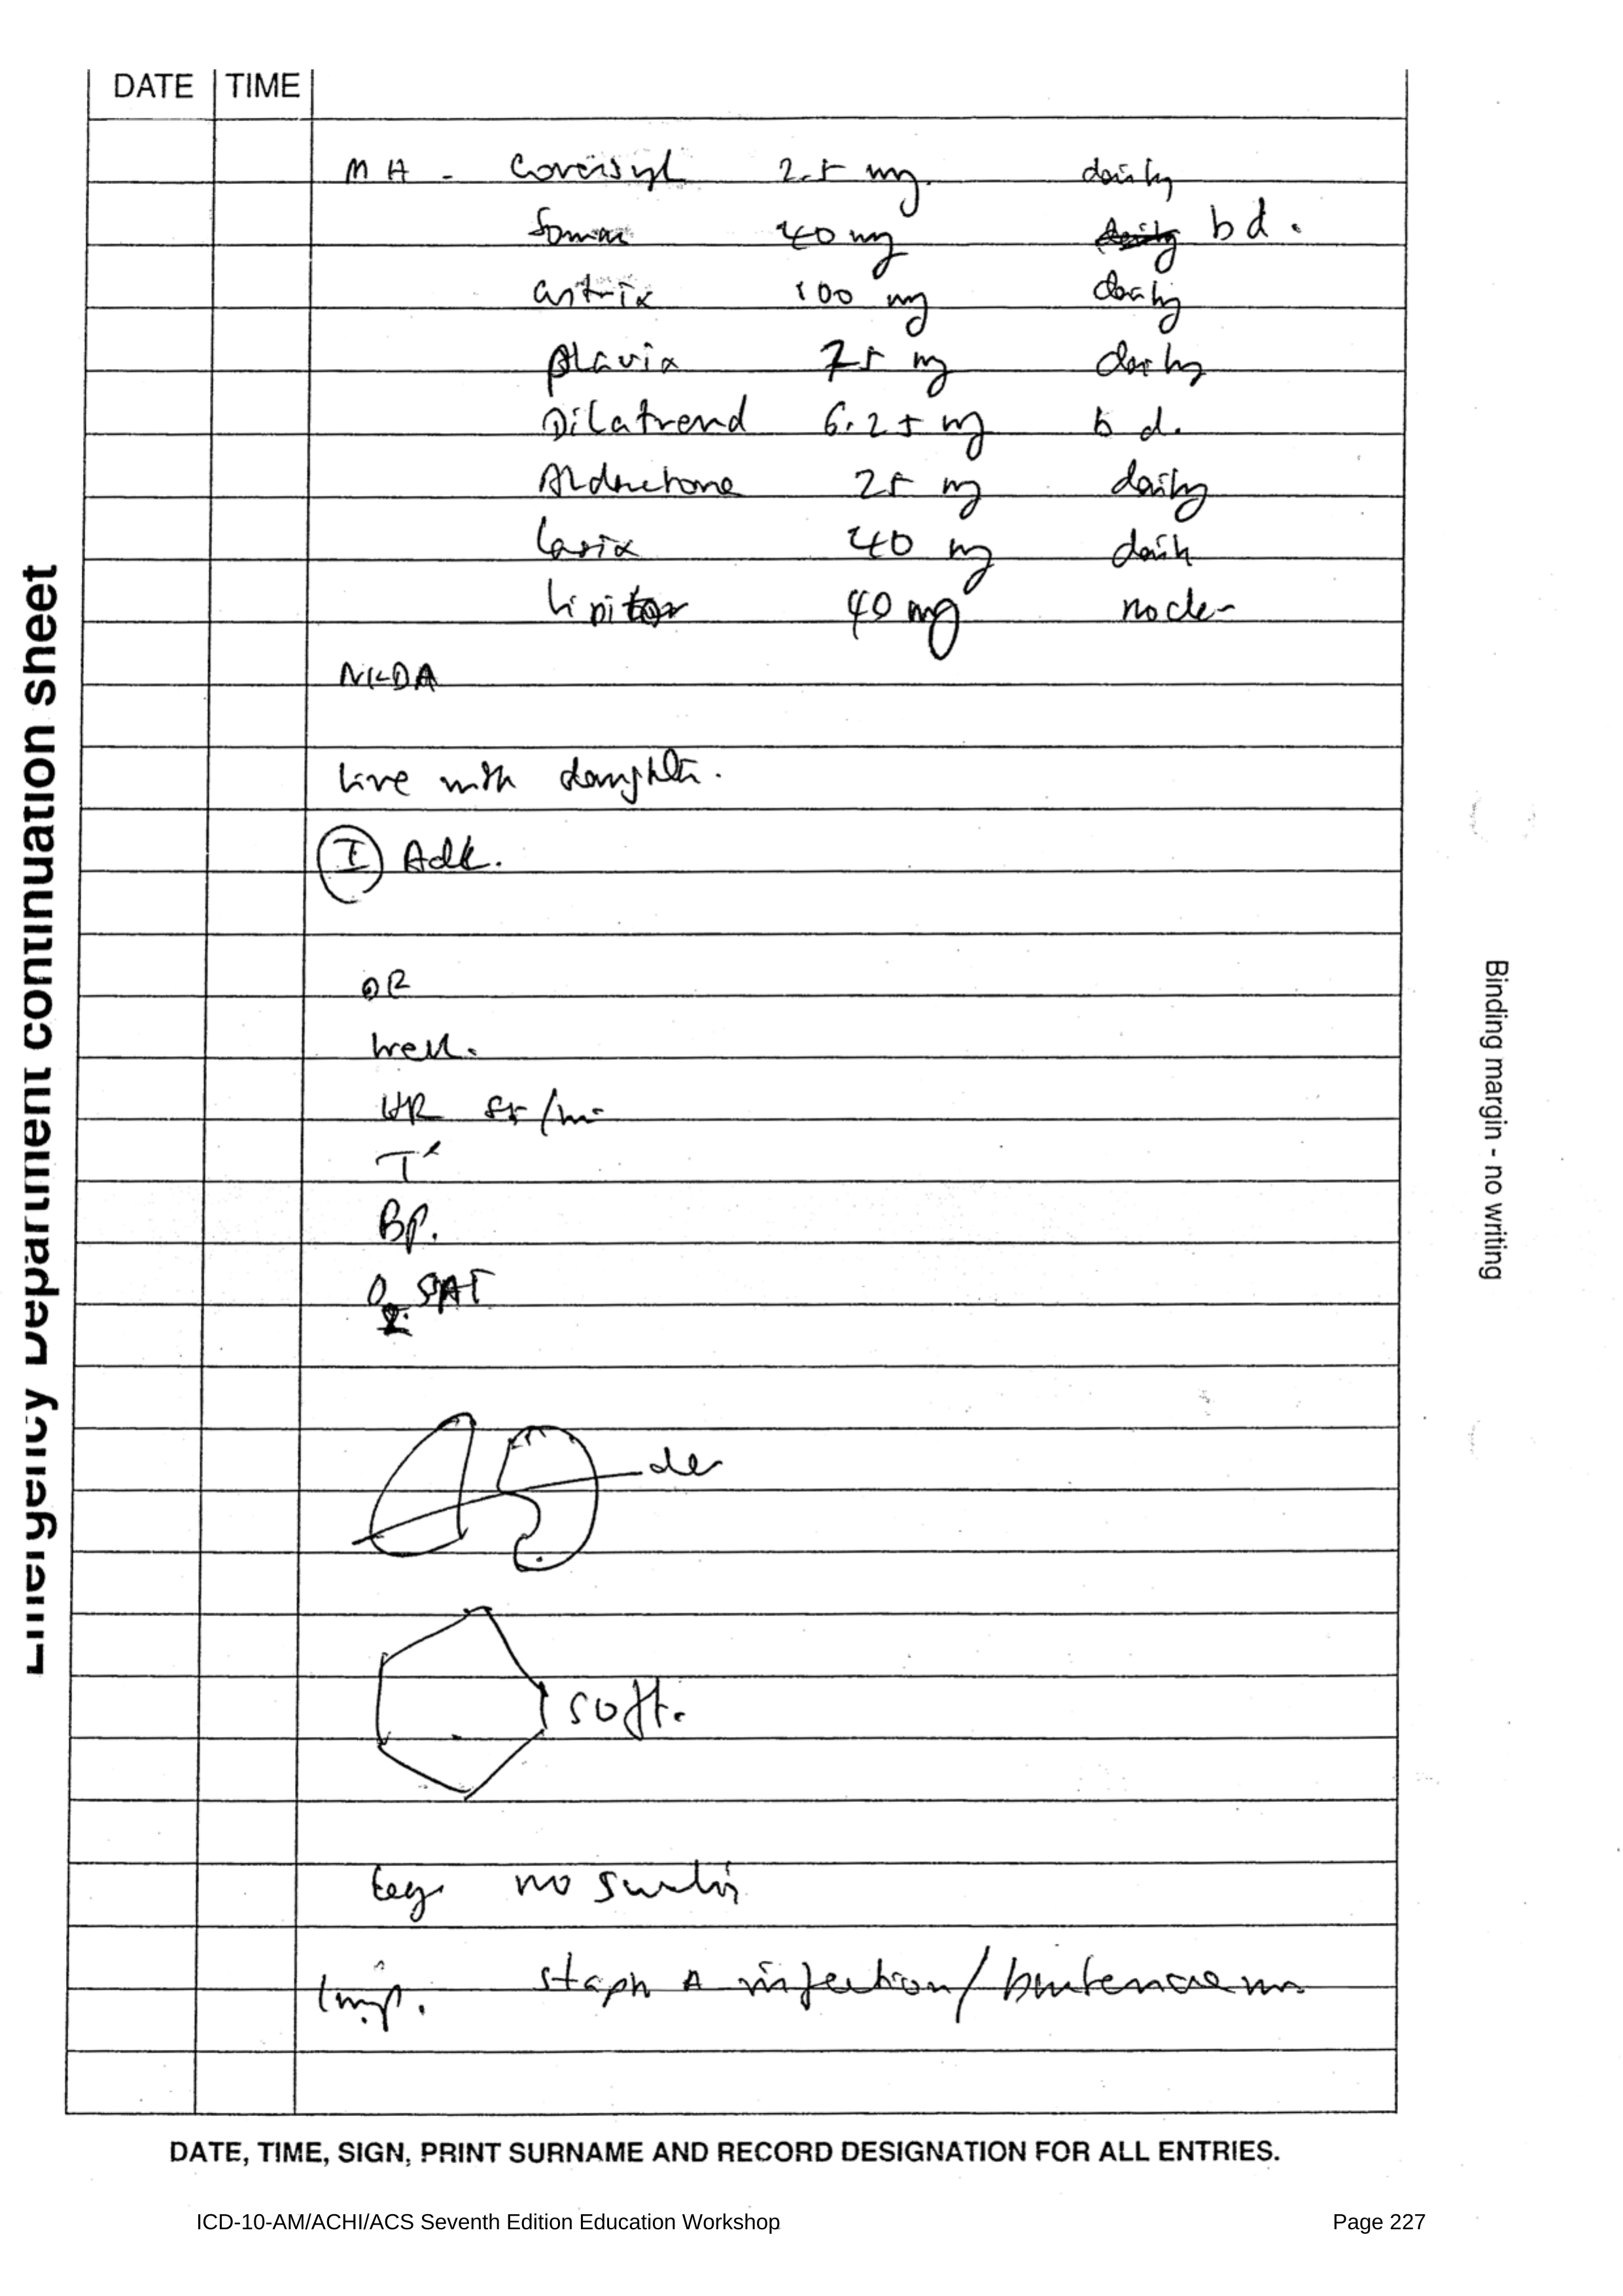 DATE TIME
MH - Coversyl 2.5 mg. daily
Somac 40 mg daily bd.
astrix 100 mg daily
plavix 75 mg daily
Dilatrend 6.25 mg bd.
Aldactone 25 mg daily
Lasix 40 mg daily
Lipitor 40 mg nocte
NKDA
Live with daughter.
I Adl.
OE
Well.
HR 85/min
T
BP.
O2 SAT
soft.
Leg no swelling
Imp. Staph A infection/
Emergency Department continuation sheet
Binding margin - no writing
DATE, TIME, SIGN, PRINT SURNAME AND RECORD DESIGNATION FOR ALL ENTRIES.
ICD-10-AM/ACHI/ACS Seventh Edition Education Workshop Page 227